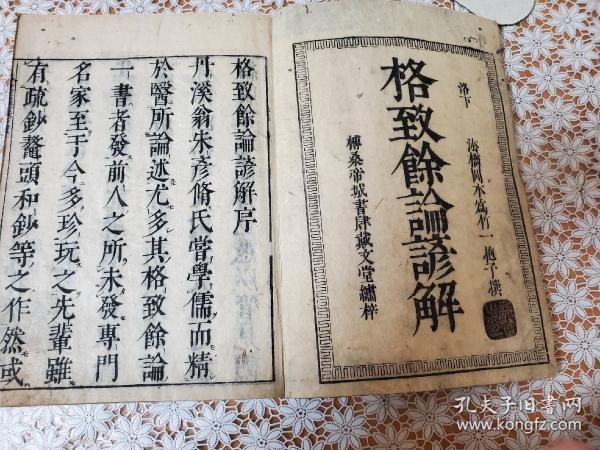 洛下 法橋岡本爲竹一抱子撰
格致餘論諺解
榑桑帝城書肆戴文堂繡梓
格致餘論諺解序
丹溪翁朱彦脩氏嘗學儒而精
於醫所論述尤多其格致餘論
一書者發前人之所未發專門
名家至于今多珍玩之先輩雖
有疏鈔鼇頭和鈔等之作然或
孔夫子旧书网